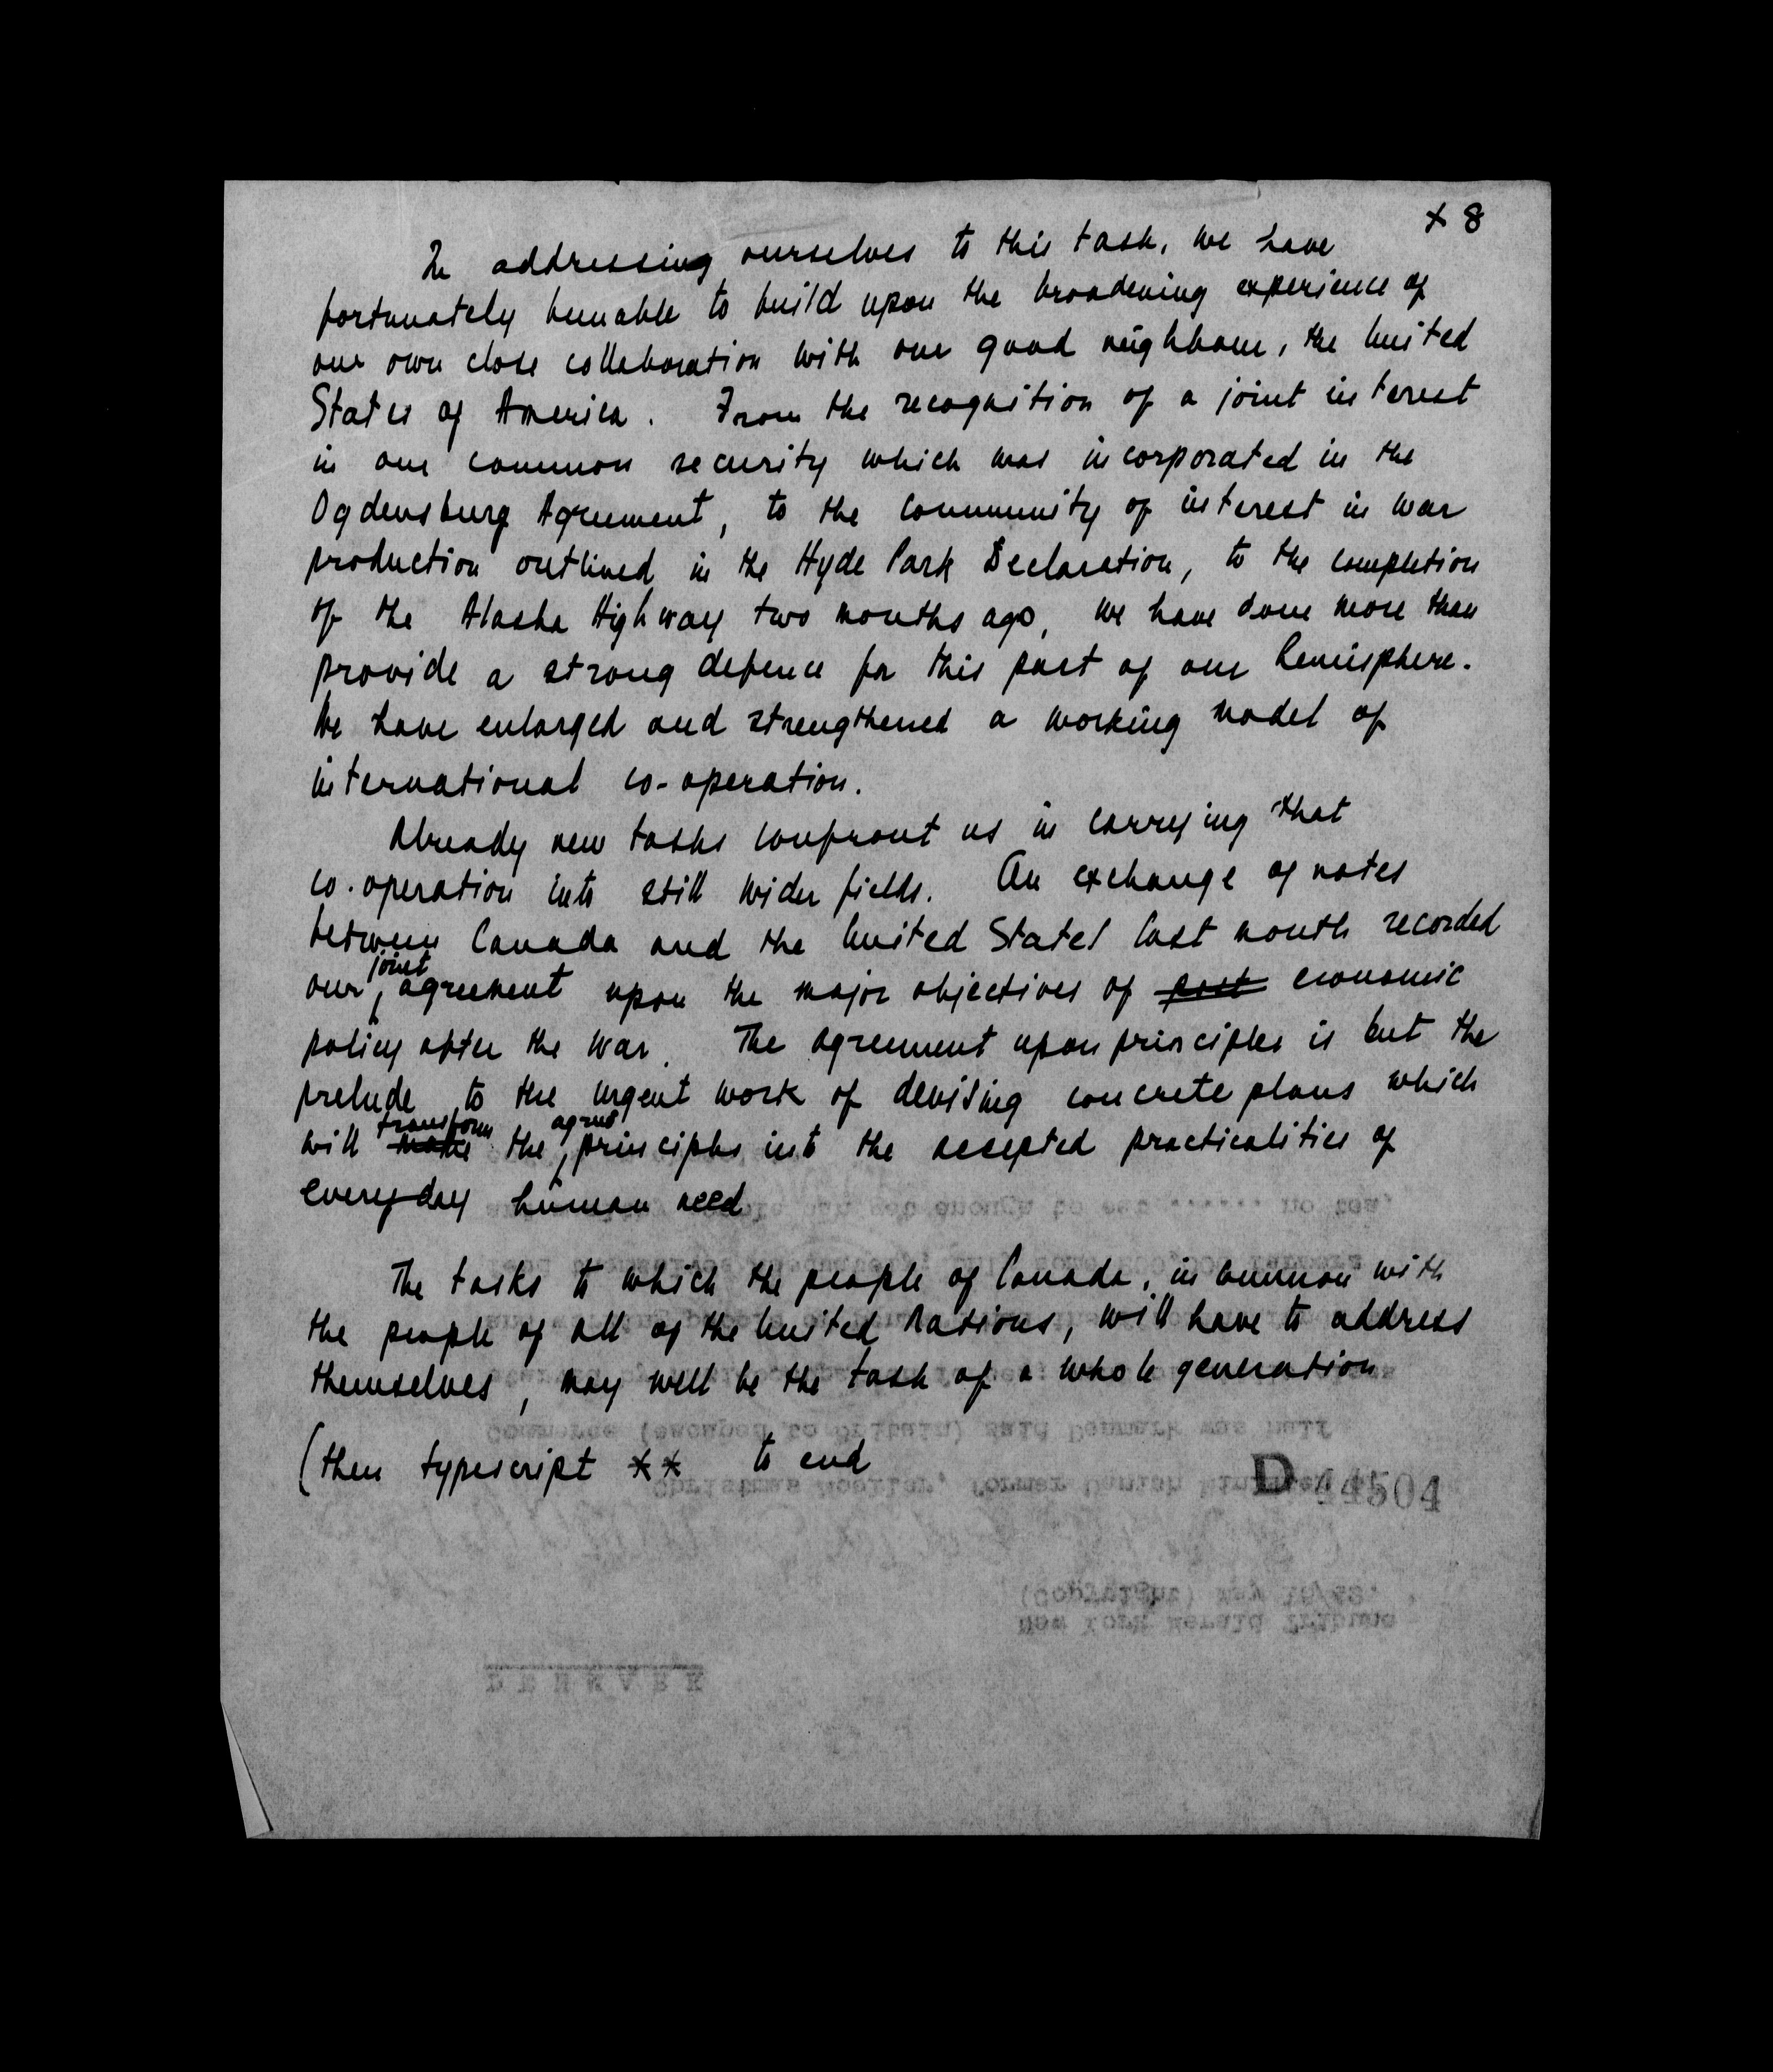 × 8
In addressing ourselves to this task, we have
fortunately been able to build upon the broadening experience of
our own close collaboration with our good neighbour, the United
States of America. From the recognition of a joint interest
in our common security which was incorporated in the
Ogdensburg Agreement, to the community of interest in war
production outlined in the Hyde Park Declaration, to the completion
of the Alaska Highway two months ago, we have done more than
provide a strong defence for this part of our hemisphere.
We have enlarged and strengthened a working model of
international co-operation.
Already new tasks confront us in carrying that
co-operation into still wider fields. An exchange of notes
between Canada and the United States last month recorded
joint
our agreement upon the major objectives of post economic
policy after the war. The agreement upon principles is but the
prelude to the urgent work of devising concrete plans which
transform agreed
will make the principles into the accepted practicalities of
everyday human need
The tasks to which the people of Canada, in common with
the people of all of the United Nations, will have to address
themselves, may well be the task of a whole generation.
(then typescript ** to end
D 44504
Commerce (escaped to Britain) said Denmark was
Christmas Moeller, former Danish
(Copyright) May 18/43.
New York Herald Tribune
DENMARK